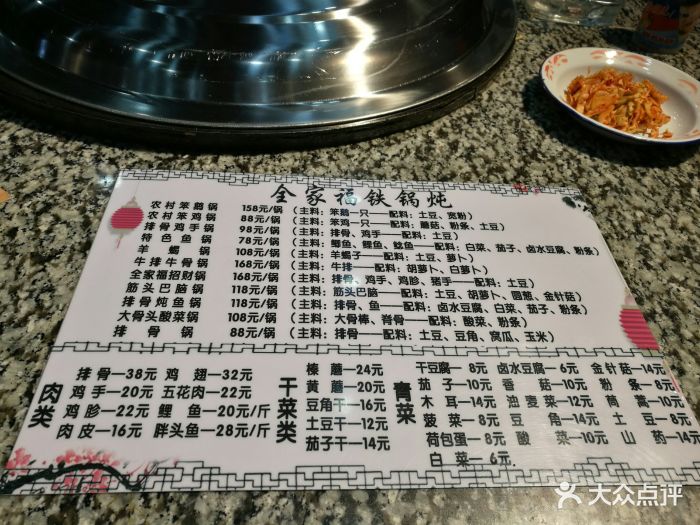 全家福铁锅炖
农村笨鹅锅 158元/锅 (主料:笨鹅一只——配料:土豆、宽粉)
农村笨鸡锅 88元/锅 (主料:笨鸡一只——配料:蘑菇、粉条、土豆)
排骨鸡手锅 98元/锅 (主料:排骨、鸡手——配料:土豆)
特色鱼锅 78元/锅 (主料:鲫鱼、鲤鱼、鲶鱼——配料:白菜、茄子、卤水豆腐、粉条)
羊蝎锅 108元/锅 (主料:羊蝎子——配料:土豆、萝卜)
牛排牛骨锅 168元/锅 (主料:牛排——配料:胡萝卜、白萝卜)
全家福招财锅 168元/锅 (主料:排骨、鸡手、鸡胗、猪手——配料:土豆)
筋头巴脑锅 118元/锅 (主料:筋头巴脑——配料:土豆、胡萝卜、圆葱、金针菇)
排骨炖鱼锅 118元/锅 (主料:排骨、鱼——配料:卤水豆腐、白菜、茄子、粉条)
大骨头酸菜锅 108元/锅 (主料:大骨棒、脊骨——配料:酸菜、粉条)
排骨锅 88元/锅 (主料:排骨——配料:土豆、豆角、窝瓜、玉米)
肉类
排骨—38元 鸡翅—32元
鸡手—20元 五花肉—22元
鸡胗—22元 鲤鱼—20元/斤
肉皮—16元 胖头鱼—28元/斤
干菜类
榛蘑—24元
黄蘑—20元
豆角干—16元
土豆干—12元
茄子干—14元
青菜
干豆腐—8元 卤水豆腐—6元 金针菇—14元
茄子—10元 香菇—10元 粉条—8元
木耳—14元 油麦菜—12元 茼蒿—10元
菠菜—8元 豆角—10元 土豆—8元
荷包蛋—8元 酸菜—10元 山药—14元
白菜—6元
大众点评